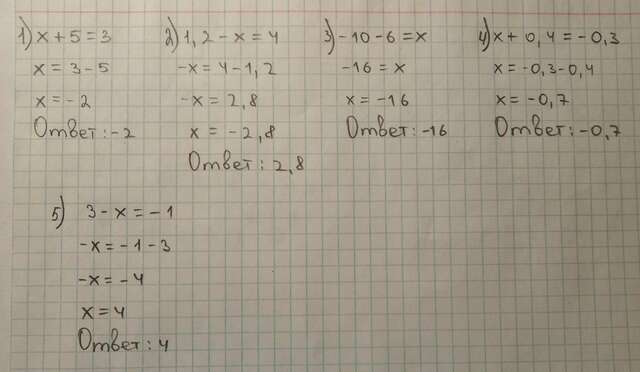 1) x + 5 = 3
x = 3 - 5
x = - 2
Ответ: - 2
2) 1, 2 - x = 4
-x = 4 - 1, 2
-x = 2, 8
x = - 2, 8
Ответ: 2, 8
3) - 10 - 6 = x
-16 = x
x = -16
Ответ: -16
4) x + 0, 4 = - 0, 3
x = -0,3 - 0,4
x = -0,7
Ответ: -0,7
5) 3 - x = - 1
-x = - 1 - 3
-x = - 4
x = 4
Ответ: 4